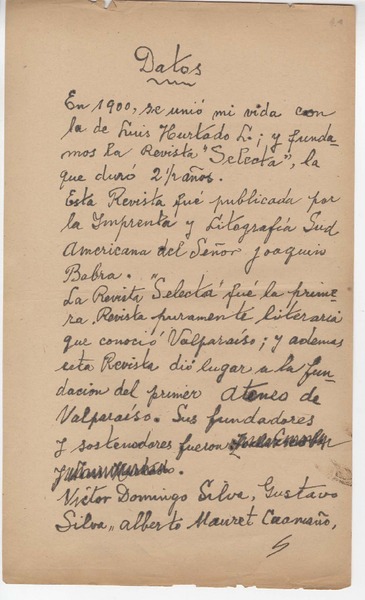 Datos
En 1900, se unió mi vida con
la de Luis Hurtado L.; y funda-
mos la Revista "Selecta", la
que duró 2½ años.
Esta Revista fué publicada por
la Imprenta y Litografía Sud
Americana del Señor Joaquin
Babra.
La Revista "Selecta" fué la prime-
ra Revista puramente literaria
que conoció Valparaíso; y ademas
esta Revista dió lugar a la fun-
dación del primer Ateneo de
Valparaíso. Sus fundadores
y sostenedores fueron
Víctor Domingo Silva, Gustavo
Silva, Alberto Mauret Caamaño,